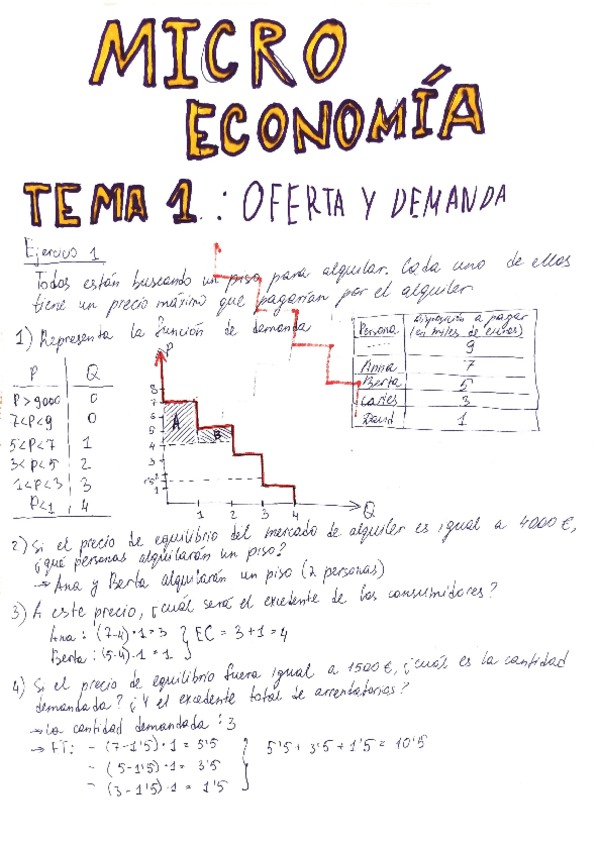 MICRO
ECONOMÍA
TEMA 1. : OFERTA Y DEMANDA
Ejercicio 1
Todos están buscando un piso para alquilar. Cada uno de ellos
tiene un precio máximo que pagarían por el alquiler
1) Representa la función de demanda
Persona | Dispuesto a pagar (en miles de euros)
----- | 9
Anna | 7
Berta | 5
Carles | 3
David | 1
P | Q
P>9000 | 0
7<P<9 | 0
5<P<7 | 1
3<P<5 | 2
1<P<3 | 3
P<1 | 4
P
8
7
6
5
4
3
1
A
B
1 2 3 4
Q
2) Si el precio de equilibrio del mercado de alquiler es igual a 4000 €,
¿qué personas alquilarán un piso?
→ Ana y Berta alquilarán un piso (2 personas)
3) A este precio, ¿cuál será el excedente de los consumidores?
Ana: (7-4)·1=3
Berta: (5-4)·1=1
} EC = 3+1=4
4) Si el precio de equilibrio fuera igual a 1500€, ¿cuál es la cantidad
demandada? ¿Y el excedente total de arrendatarios?
→ La cantidad demandada: 3
→ ET: - (7-1'5)·1 = 5'5
- (5-1'5)·1 = 3'5
- (3-1'5)·1 = 1'5
} 5'5 + 3'5 + 1'5 = 10'5